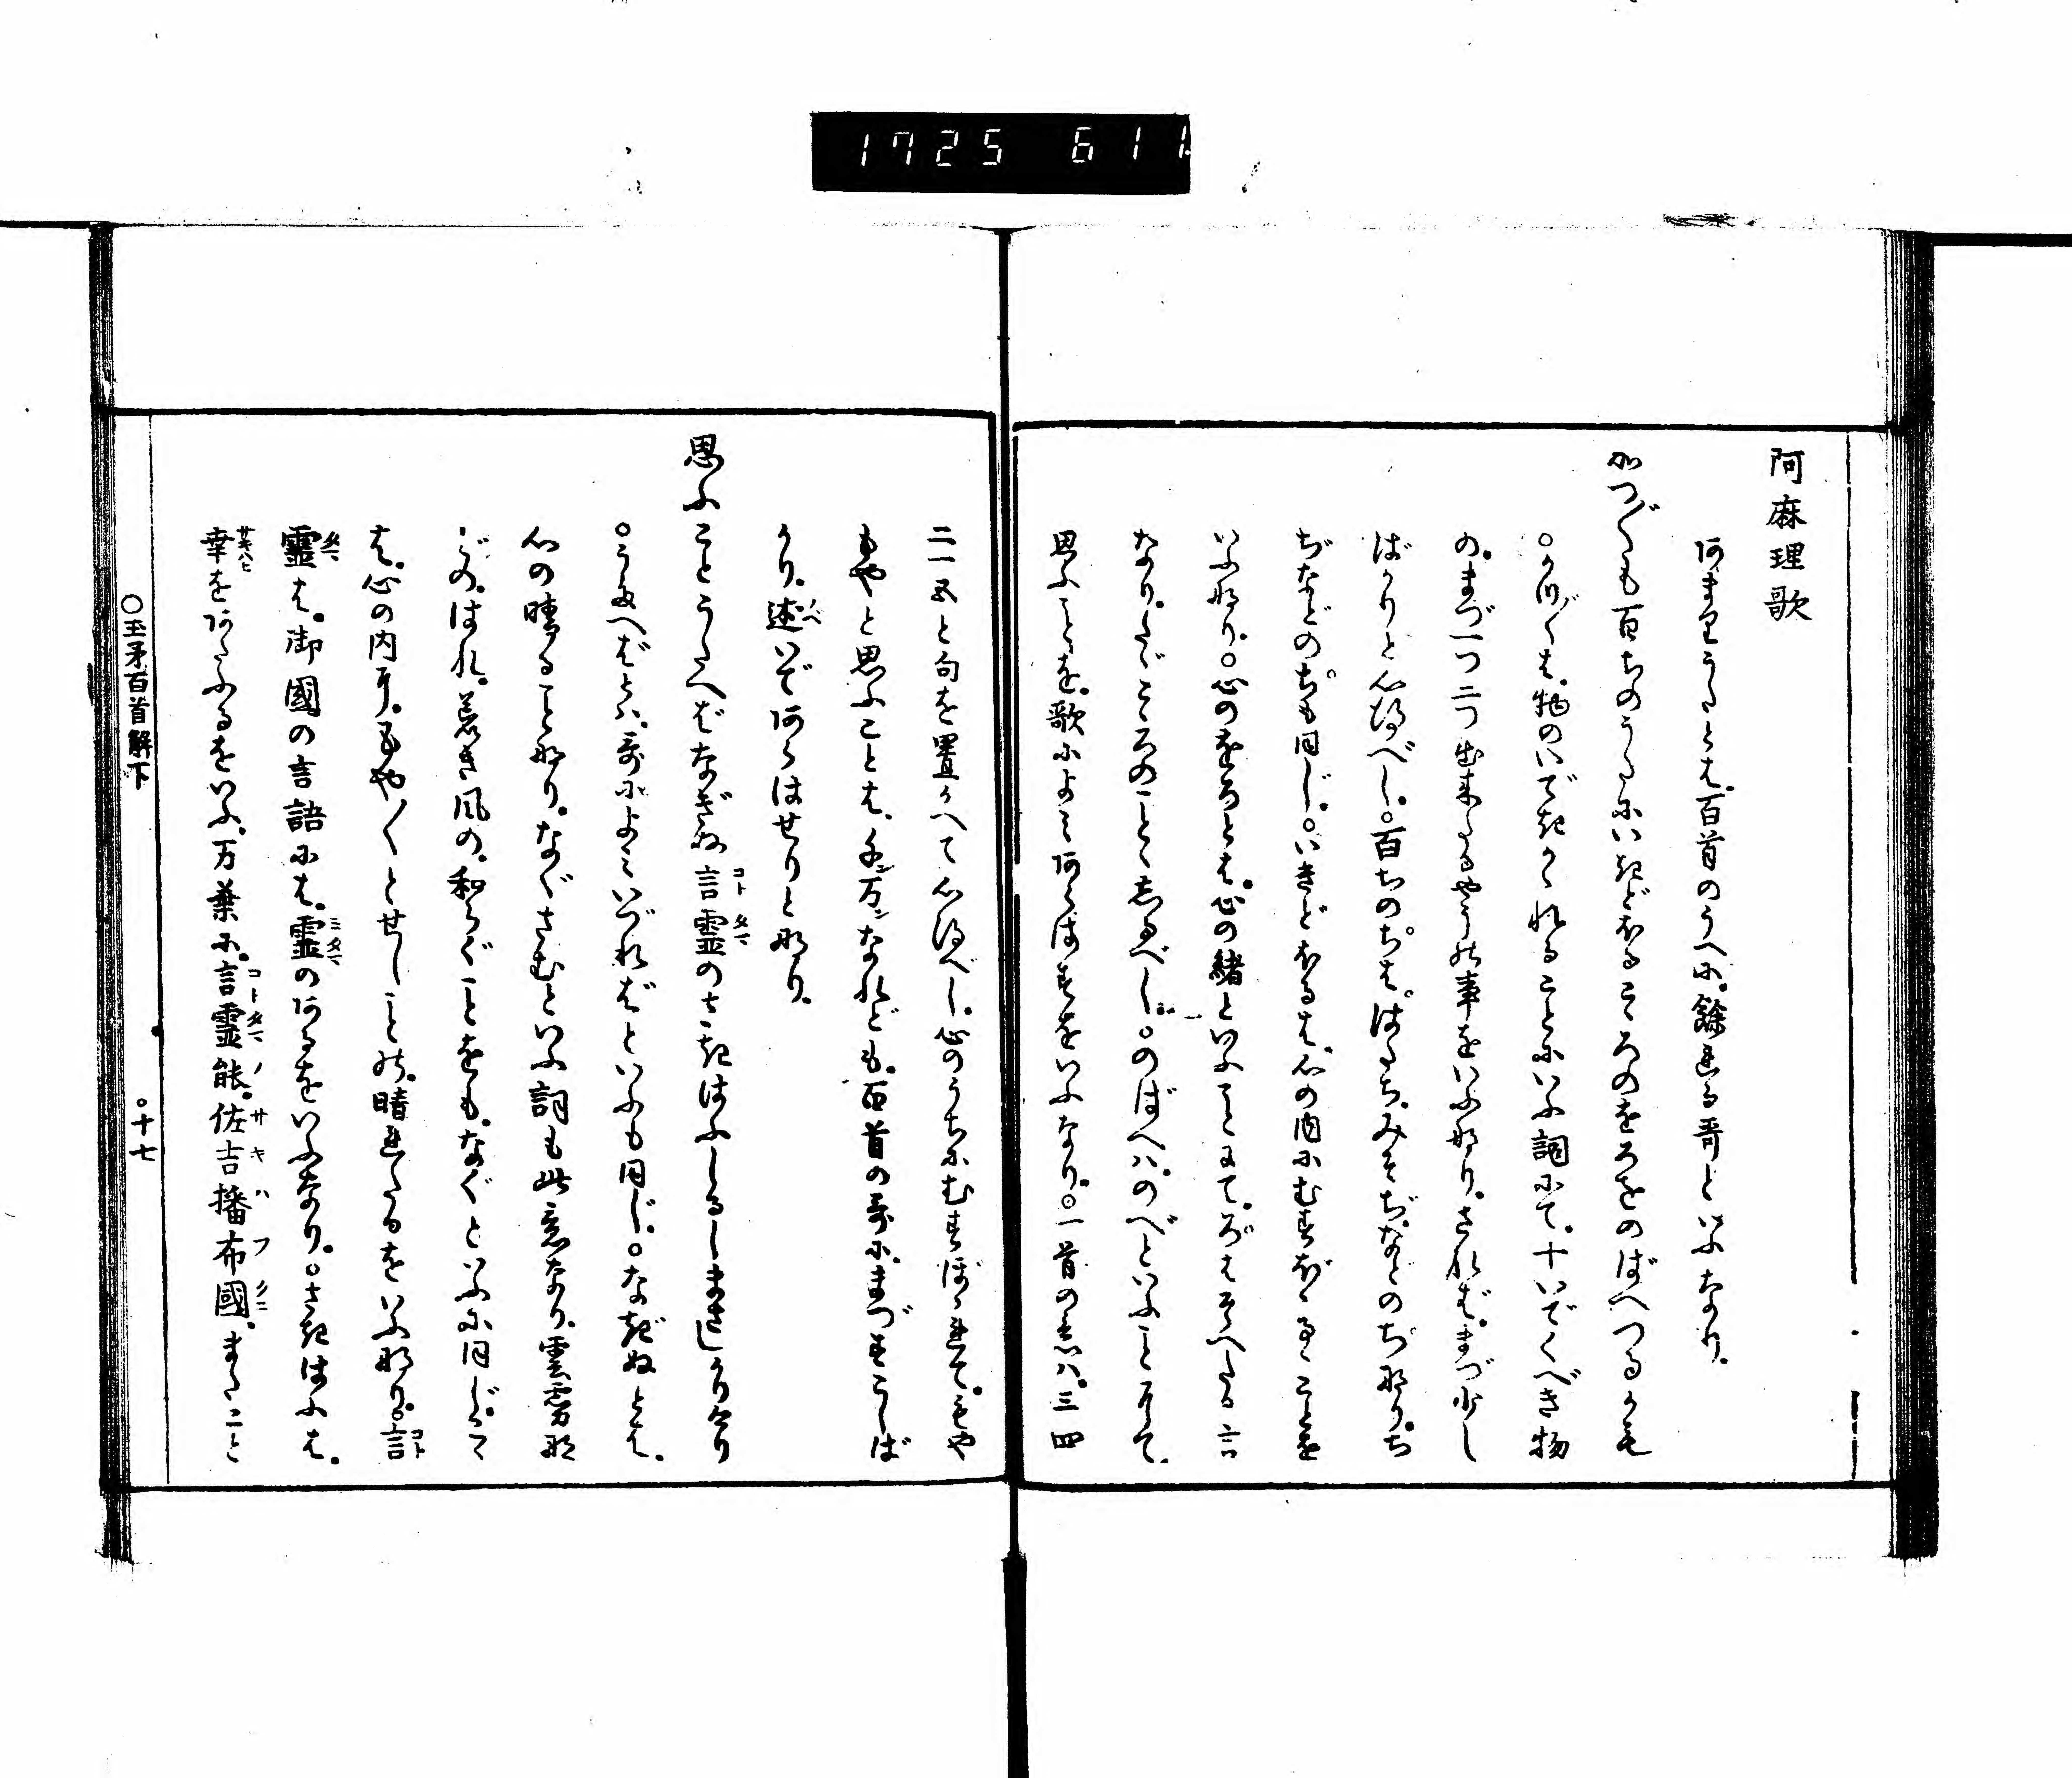 1725 611
阿麻理歌
阿まりうたとは。百首のうへに。餘れる哥といふなり。
かつ〴〵も百ちのうたにいきどほるこゝろのをろをのばへつるかも
○かつ〴〵は。物のいできかゝれることにいふ詞にて。十いでくべき物
の。まづ一つ二つ出来たるやうの事をいふ那り。されば。まづ少し
ばかりと心得べし。○百ちのちは。はたち。みそぢ。などのち那り。ち
ぢなどのちも同じ。○いきどほるは。心の内にむすぼゝるゝことを
いふ那り。○心のをろとは。心の緒といふことにて。ろはそへたる言
なり。たゞこゝろのことゝ志るべし。○のばへハ。のべといふことにて。
思ふことを。歌によミ阿らはすをいふなり。○一首の意ハ。三四
二一五と句を置かへて心得べし。心のうちにむすぼゝれて。もや
もやと思ふことは。千万なれども。百首の哥に。まづすこしば
かり。述いで阿らはせりと那り。
思ふことうたへばなぎぬ言霊のさきはふしるしまさしかりけり
○うたへばとハ。哥によミいづればといふも同じ。○なぎぬとは。
心の晴ることなり。なぐさむといふ詞も此意なり。雲霧那
どの。はれ。荒き風の。和らぐことをも。なぐといふに同じ。こゝ
は。心の内耳。もや〳〵とせしことの。晴れたるをいふ那り。○言
霊は。御國の言語には。霊の阿るをいふなり。○さきはふは。
幸を阿たふるをいふ。万葉に。言霊能。佐吉播布國。またこと
○玉矛百首解下　○十七